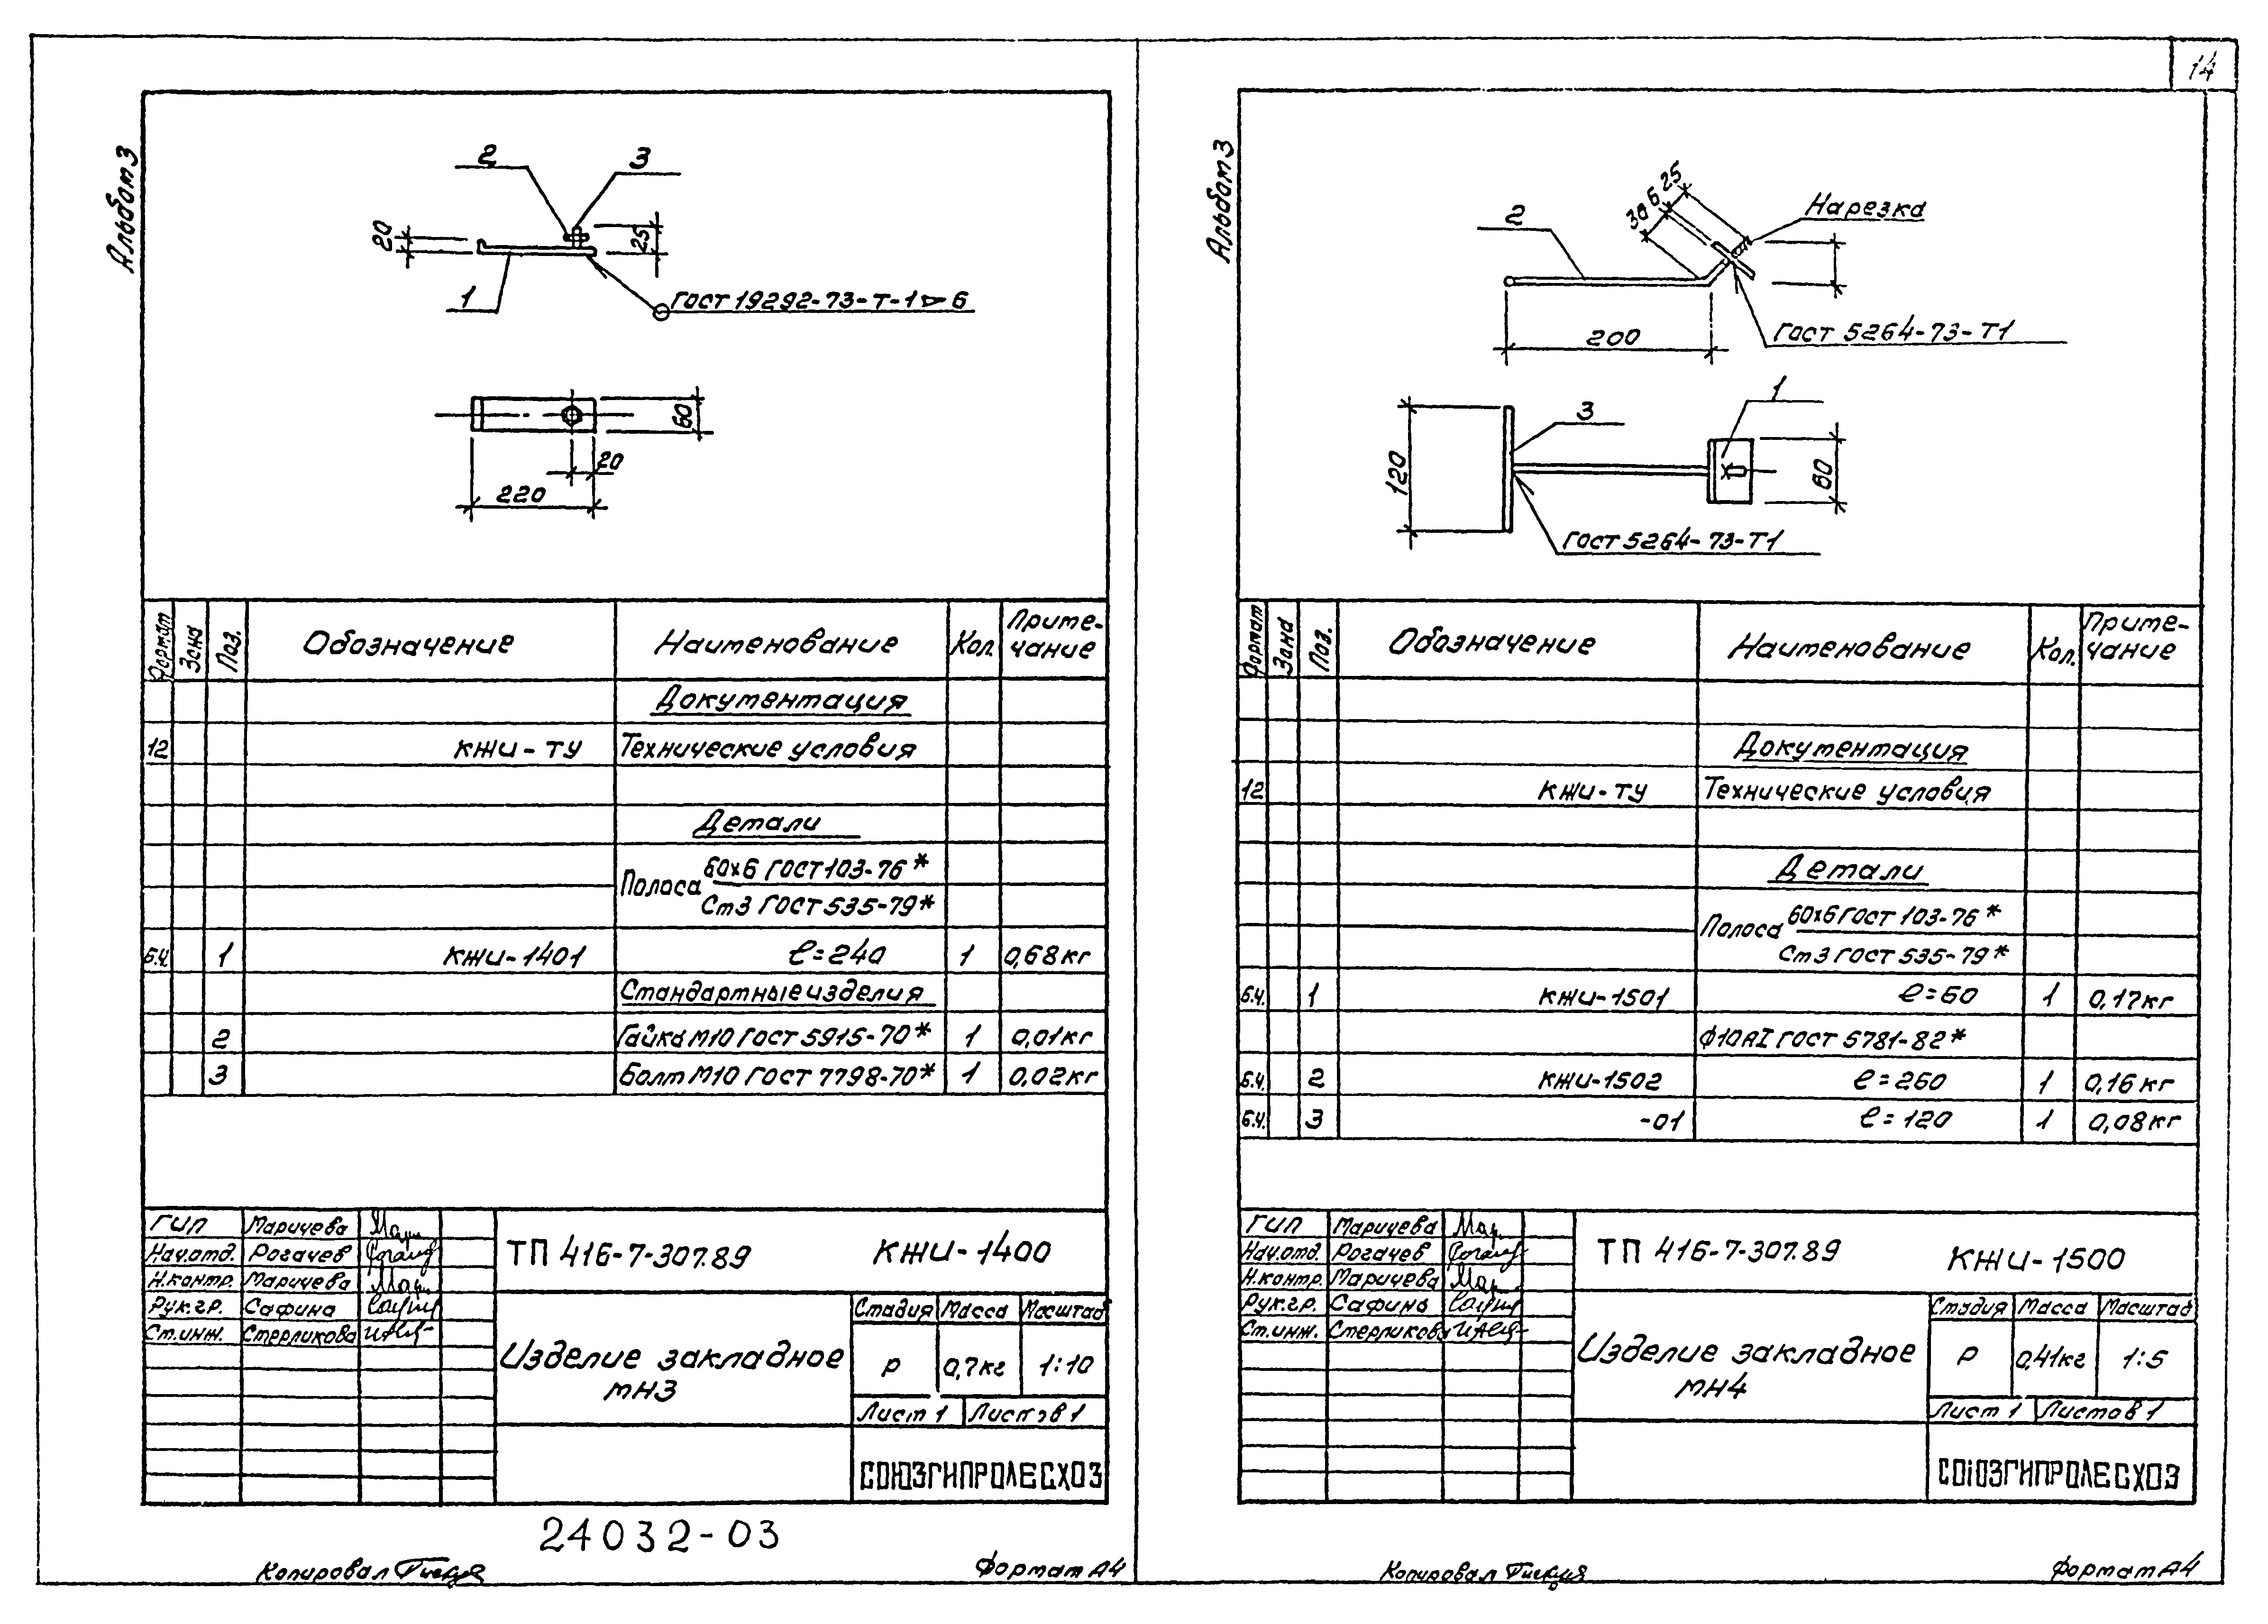 14
Альбом 3
2
3
20
25
1
ГОСТ 19292-73-Т-1 ▷ 6
60
20
220
Формат
Зона
Поз.
Обозначение
Наименование
Кол.
Приме-
чание
Документация
12 КЖИ-ТУ Технические условия
Детали
Полоса 60х6 ГОСТ 103-76*
Ст3 ГОСТ 535-79*
Б.Ч. 1 КЖИ-1401 ℓ=240 1 0,68кг
Стандартные изделия
2 Гайка М10 ГОСТ 5915-70* 1 0,01кг
3 Болт М10 ГОСТ 7798-70* 1 0,02кг
ГИП Маричева
Нач.отд. Рогачев
Н.контр. Маричева
Рук.гр. Сафина
Ст.инж. Стерликова
ТП 416-7-307.89 КЖИ-1400
Изделие закладное
МН3
Стадия Масса Масштаб
Р 0,7кг 1:10
Лист 1 Листов 1
СОЮЗГИПРОЛЕСХОЗ
24032-03
Копировал
Формат А4
Альбом 3
2
30 6 25
Нарезка
200
ГОСТ 5264-73-Т1
1
3
120
60
ГОСТ 5264-73-Т1
Формат
Зона
Поз.
Обозначение
Наименование
Кол.
Приме-
чание
Документация
12 КЖИ-ТУ Технические условия
Детали
Полоса 60х6 ГОСТ 103-76*
Ст3 ГОСТ 535-79*
Б.Ч. 1 КЖИ-1501 ℓ=60 1 0,17кг
Ф10АI ГОСТ 5781-82*
Б.Ч. 2 КЖИ-1502 ℓ=260 1 0,16кг
Б.Ч. 3 -01 ℓ=120 1 0,08кг
ГИП Маричева
Нач.отд. Рогачев
Н.контр. Маричева
Рук.гр. Сафина
Ст.инж. Стерликова
ТП 416-7-307.89 КЖИ-1500
Изделие закладное
МН4
Стадия Масса Масштаб
Р 0,41кг 1:5
Лист 1 Листов 1
СОЮЗГИПРОЛЕСХОЗ
Копировал
Формат А4